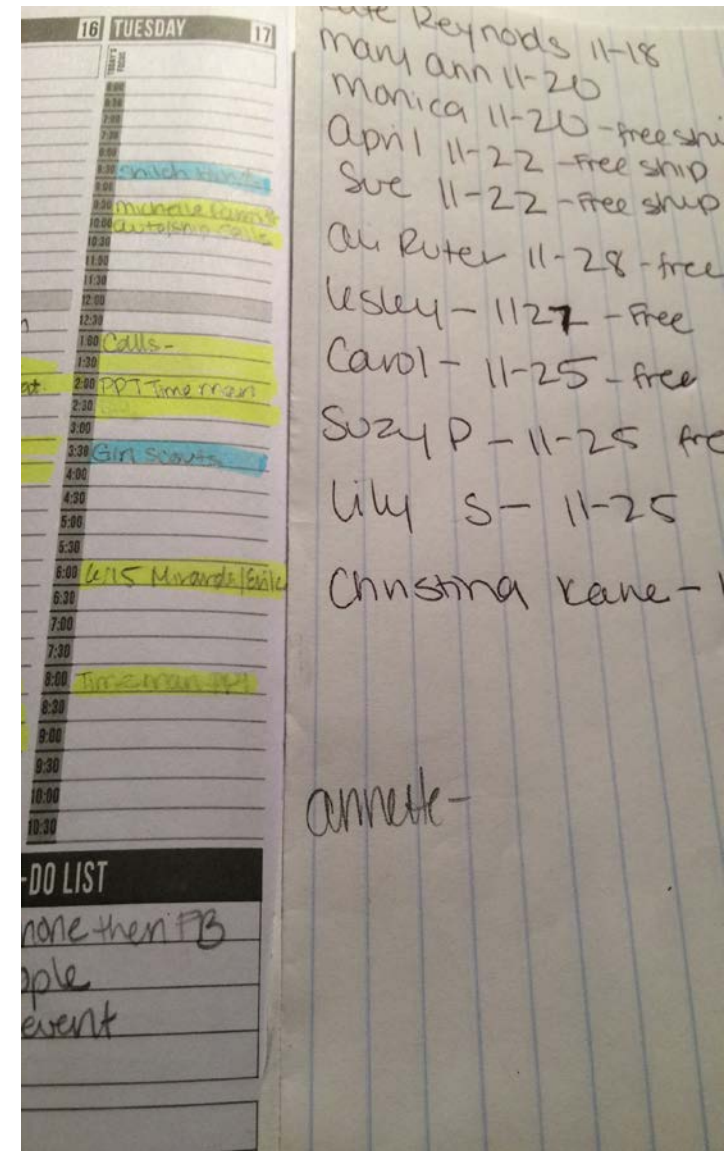 16 TUESDAY 17
TODAY'S FOCUS
8:30
9:00
9:30 Michelle
10:00 auto/ship calls
10:30
11:00
11:30
12:00
12:30
1:00 Calls-
1:30
2:00 PPT Time man
2:30
3:00
3:30 Girl Scouts
4:00
4:30
5:00
5:30
6:00 6:15 Miranda/
6:30
7:00
7:30
8:00 Timeman ppt
8:30
9:00
9:30
10:00
10:30
-DO LIST
then FB
event
Reynolds 11-18
mary ann 11-20
monica 11-20-free shi
april 11-22-free ship
Sue 11-22-free ship
Ruter 11-28-free
Lesley-1127-Free
Carol-11-25-free
Suzy P-11-25 fre
Lily S-11-25
Christina Kane-
annette-